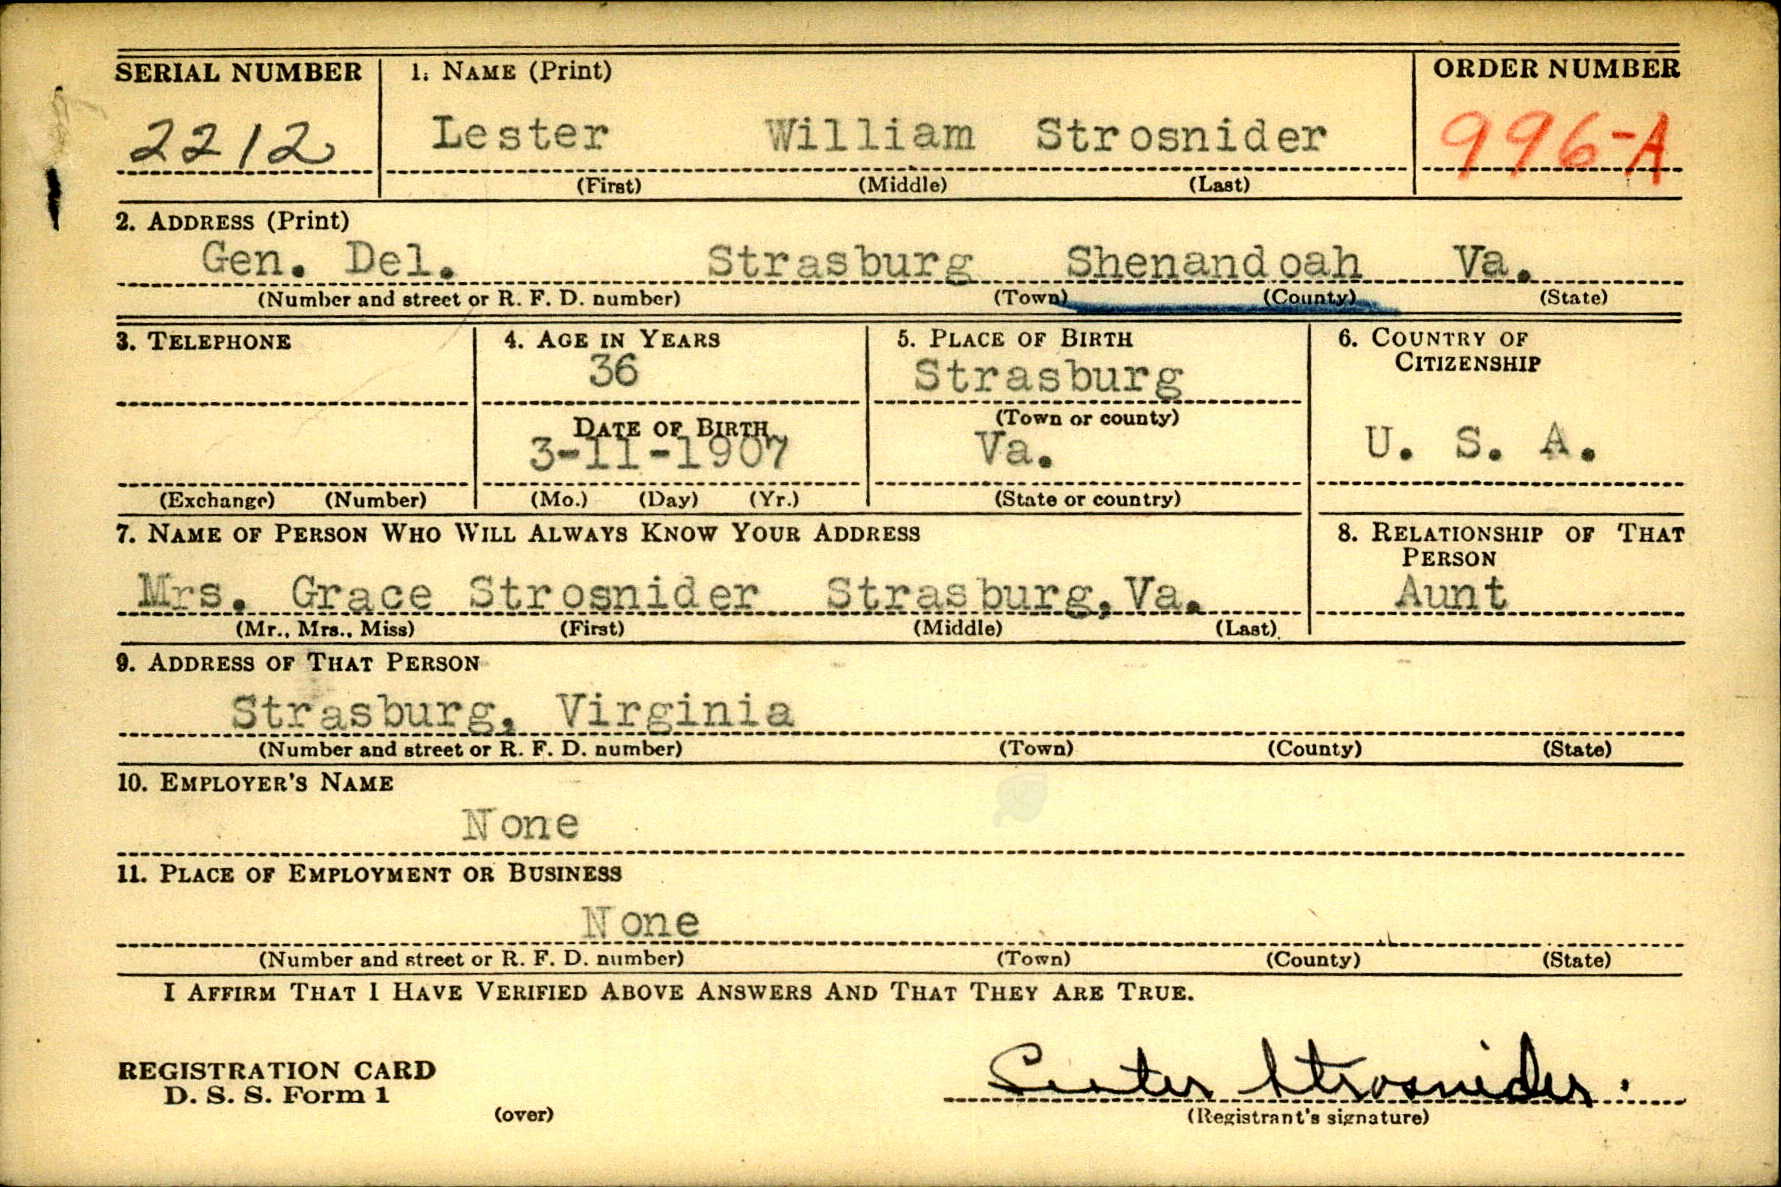 SERIAL NUMBER 1. NAME (Print) ORDER NUMBER
2212 Lester William Strosnider 996-A
(First) (Middle) (Last)
2. ADDRESS (Print)
Gen. Del. Strasburg Shenandoah Va.
(Number and street or R. F. D. number) (Town) (County) (State)
3. TELEPHONE 4. AGE IN YEARS 5. PLACE OF BIRTH 6. COUNTRY OF
CITIZENSHIP
36 Strasburg
DATE OF BIRTH (Town or county)
3-11-1907 Va. U. S. A.
(Exchange) (Number) (Mo.) (Day) (Yr.) (State or country)
7. NAME OF PERSON WHO WILL ALWAYS KNOW YOUR ADDRESS 8. RELATIONSHIP OF THAT
PERSON
Mrs. Grace Strosnider Strasburg, Va. Aunt
(Mr., Mrs., Miss) (First) (Middle) (Last)
9. ADDRESS OF THAT PERSON
Strasburg, Virginia
(Number and street or R. F. D. number) (Town) (County) (State)
10. EMPLOYER'S NAME
None
11. PLACE OF EMPLOYMENT OR BUSINESS
None
(Number and street or R. F. D. number) (Town) (County) (State)
I AFFIRM THAT I HAVE VERIFIED ABOVE ANSWERS AND THAT THEY ARE TRUE.
REGISTRATION CARD
D. S. S. Form 1
Lester Strosnider.
(over) (Registrant's signature)